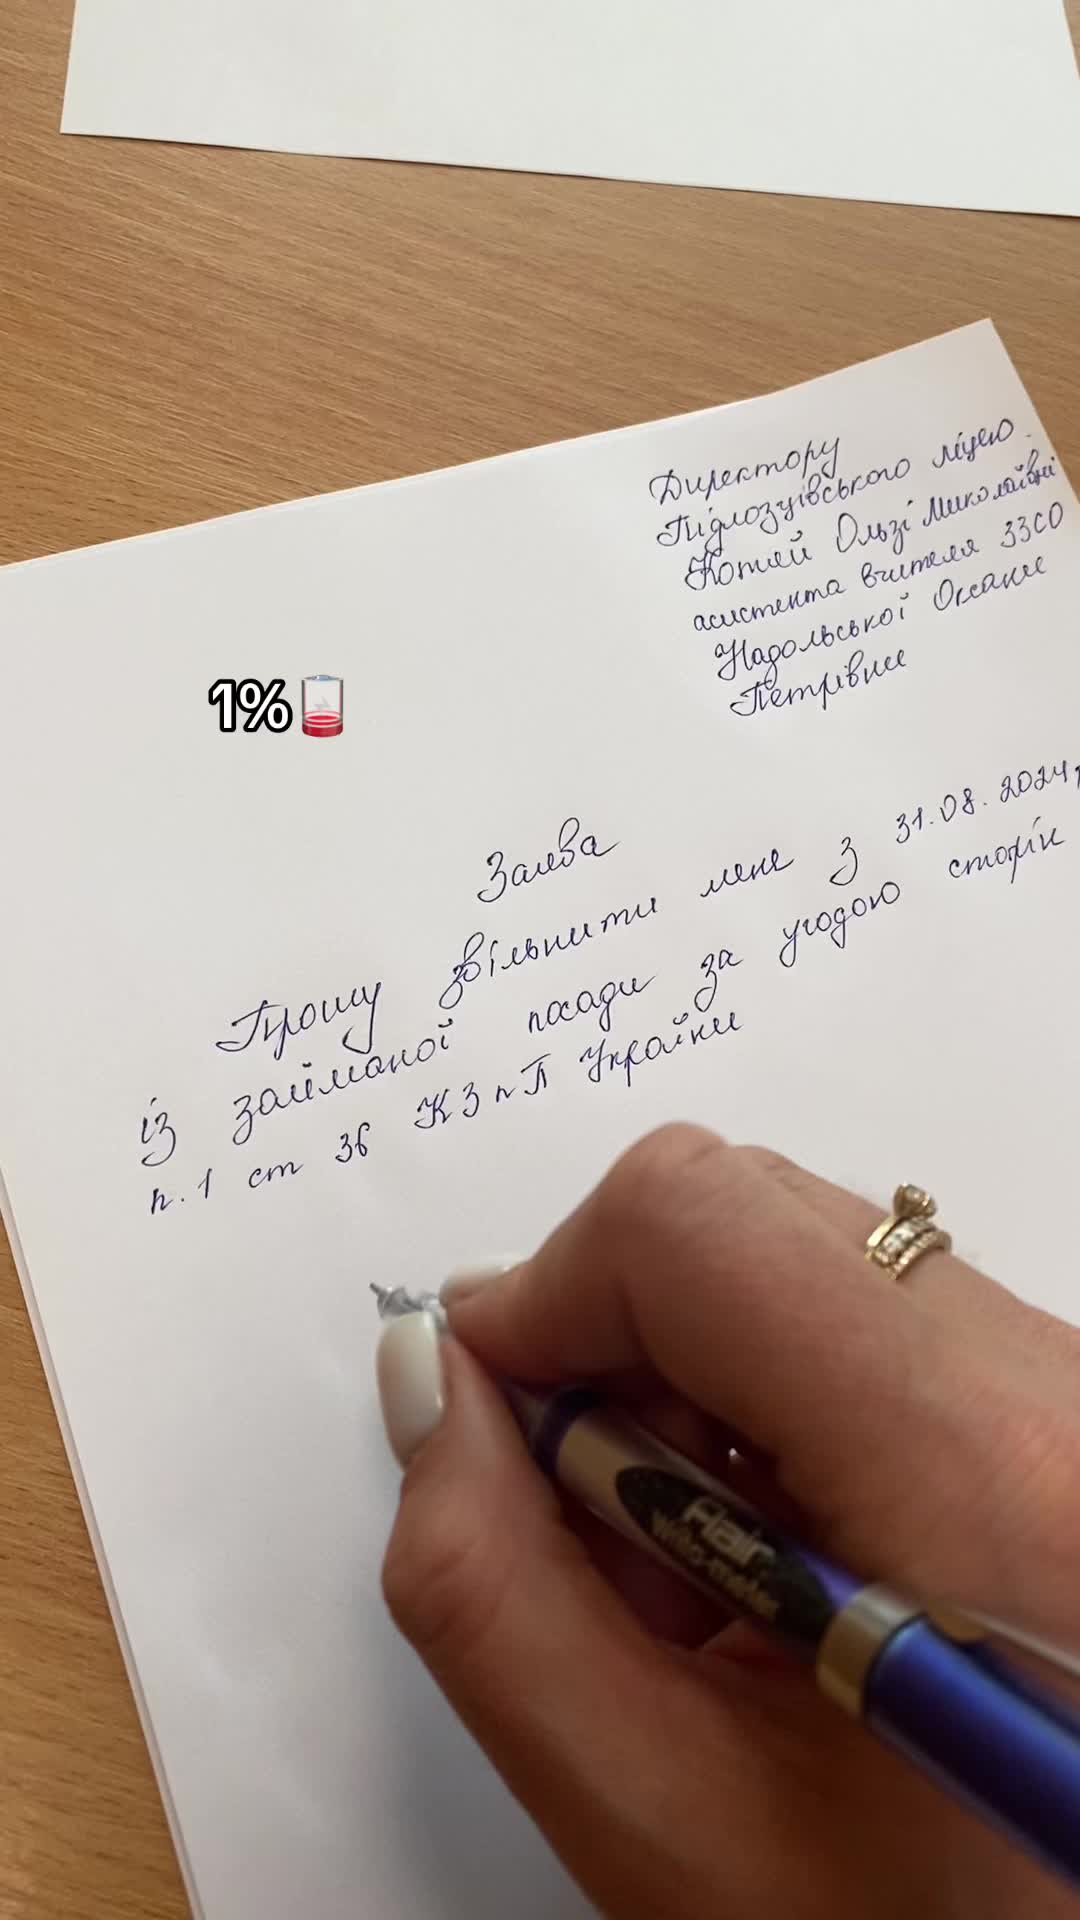 Директору
Підлозцівського ліцею
Котяй Ользі Миколаївні
асистента вчителя ЗЗСО
Надольської Оксани
Петрівни
1%
Заява
Прошу звільнити мене з 31.08.2024р
із займаної посади за угодою сторін
п.1 ст 36 КЗпП України
Flair
Writo-meter